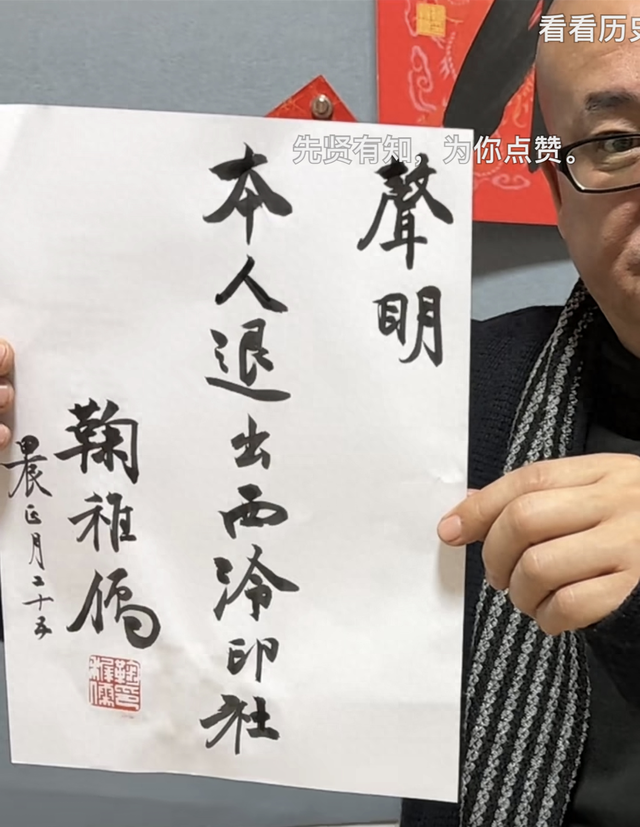 看看历史
先贤有知，为你点赞。
聲明
本人退出西泠印社
鞠稚儒
甲辰正月二十五